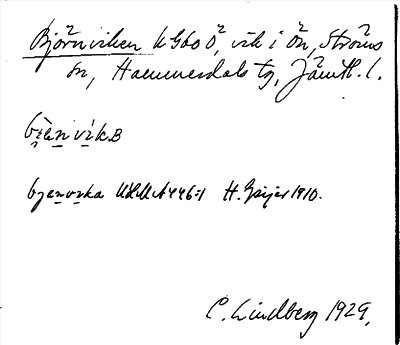 Björnviken k GboO, vik i ån, Ströms
sn, Hammerdals tg, Jämtl. l.
bjenvika
bjenvika ULMA 446:1 H. Geijer 1910.
C. Lindberg 1929.